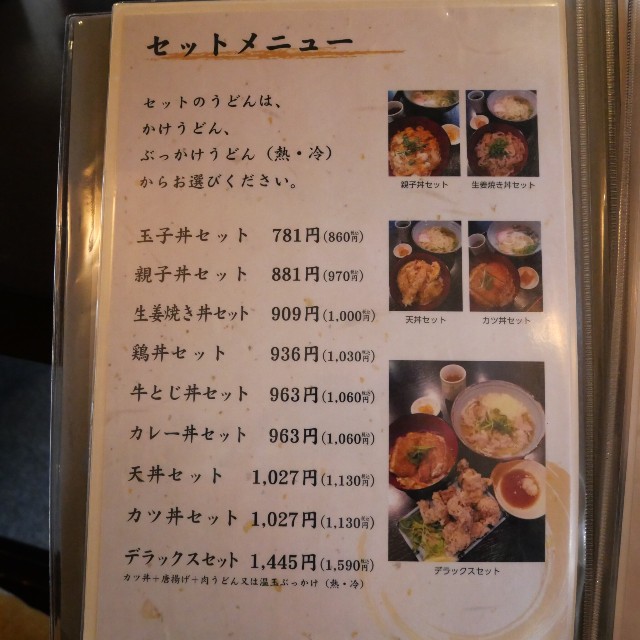 セットメニュー
セットのうどんは、
かけうどん、
ぶっかけうどん(熱・冷)
からお選びください。
玉子丼セット 781円(860税込円)
親子丼セット 881円(970税込円)
生姜焼き丼セット 909円(1,000税込円)
鶏丼セット 936円(1,030税込円)
牛とじ丼セット 963円(1,060税込円)
カレー丼セット 963円(1,060税込円)
天丼セット 1,027円(1,130税込円)
カツ丼セット 1,027円(1,130税込円)
デラックスセット 1,445円(1,590税込円)
カツ丼+唐揚げ+肉うどん又は温玉ぶっかけ(熱・冷)
親子丼セット 生姜焼き丼セット
天丼セット カツ丼セット
デラックスセット